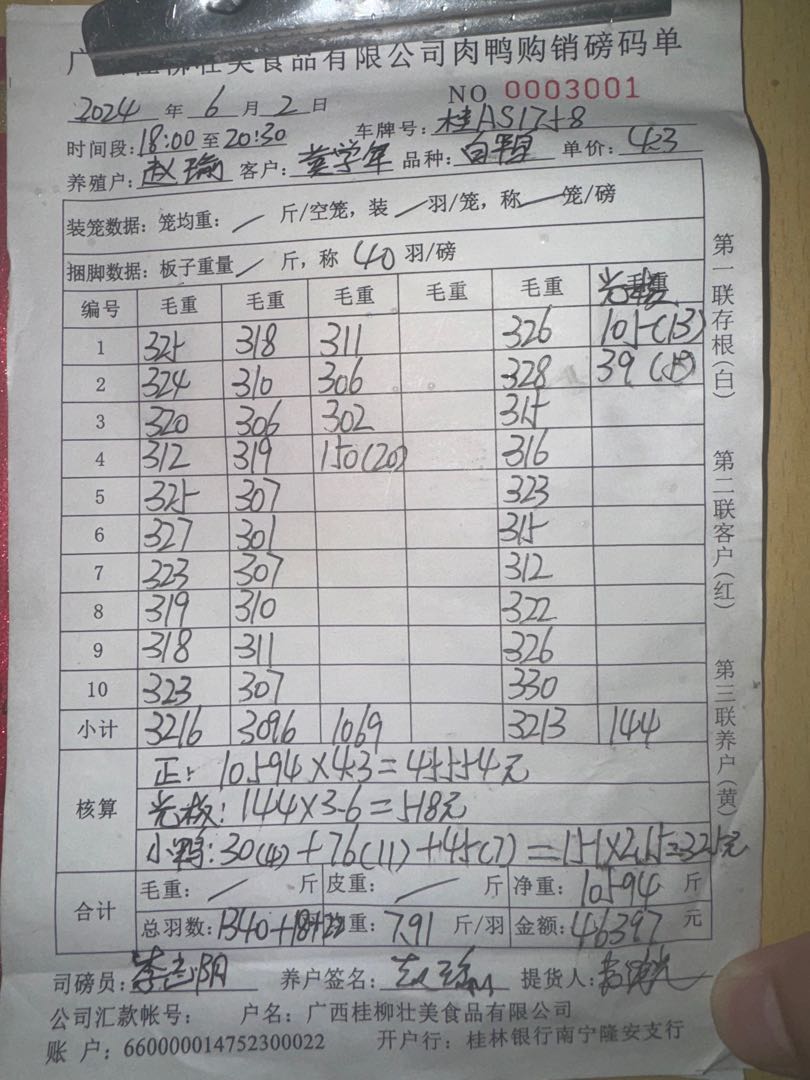 广西桂柳壮美食品有限公司肉鸭购销磅码单
NO 0003001
2024 年 6 月 2 日
时间段: 18:00 至 20:30 车牌号: 桂AS1758
养殖户: 赵瑜 客户: 黄学年 品种: 白 单价: 4.3
装笼数据: 笼均重: / 斤/空笼, 装 / 羽/笼, 称 / 笼/磅
捆脚数据: 板子重量 / 斤, 称 40 羽/磅
编号 毛重 毛重 毛重 毛重 毛重 光板
1 325 318 311 326 105(13)
2 324 310 306 328 39(5)
3 320 306 302 315
4 312 319 150(20) 316
5 325 307 323
6 327 301 315
7 323 307 312
8 319 310 322
9 318 311 326
10 323 307 330
小计 3216 3096 1069 3213 144
核算
正: 10594×4.3=45554元
光板: 144×3.6=518元
小鸭: 30(4)+76(11)+45(7)=151×2.15=325元
合计
毛重: / 斤 皮重: / 斤 净重: 10594 斤
总羽数: 1340+18+22 均重: 7.91 斤/羽 金额: 46397 元
司磅员: 李志阴 养户签名: 提货人:
公司汇款帐号: 户名: 广西桂柳壮美食品有限公司
账 户: 660000014752300022 开户行: 桂林银行南宁隆安支行
第一联存根(白) 第二联客户(红) 第三联养户(黄)